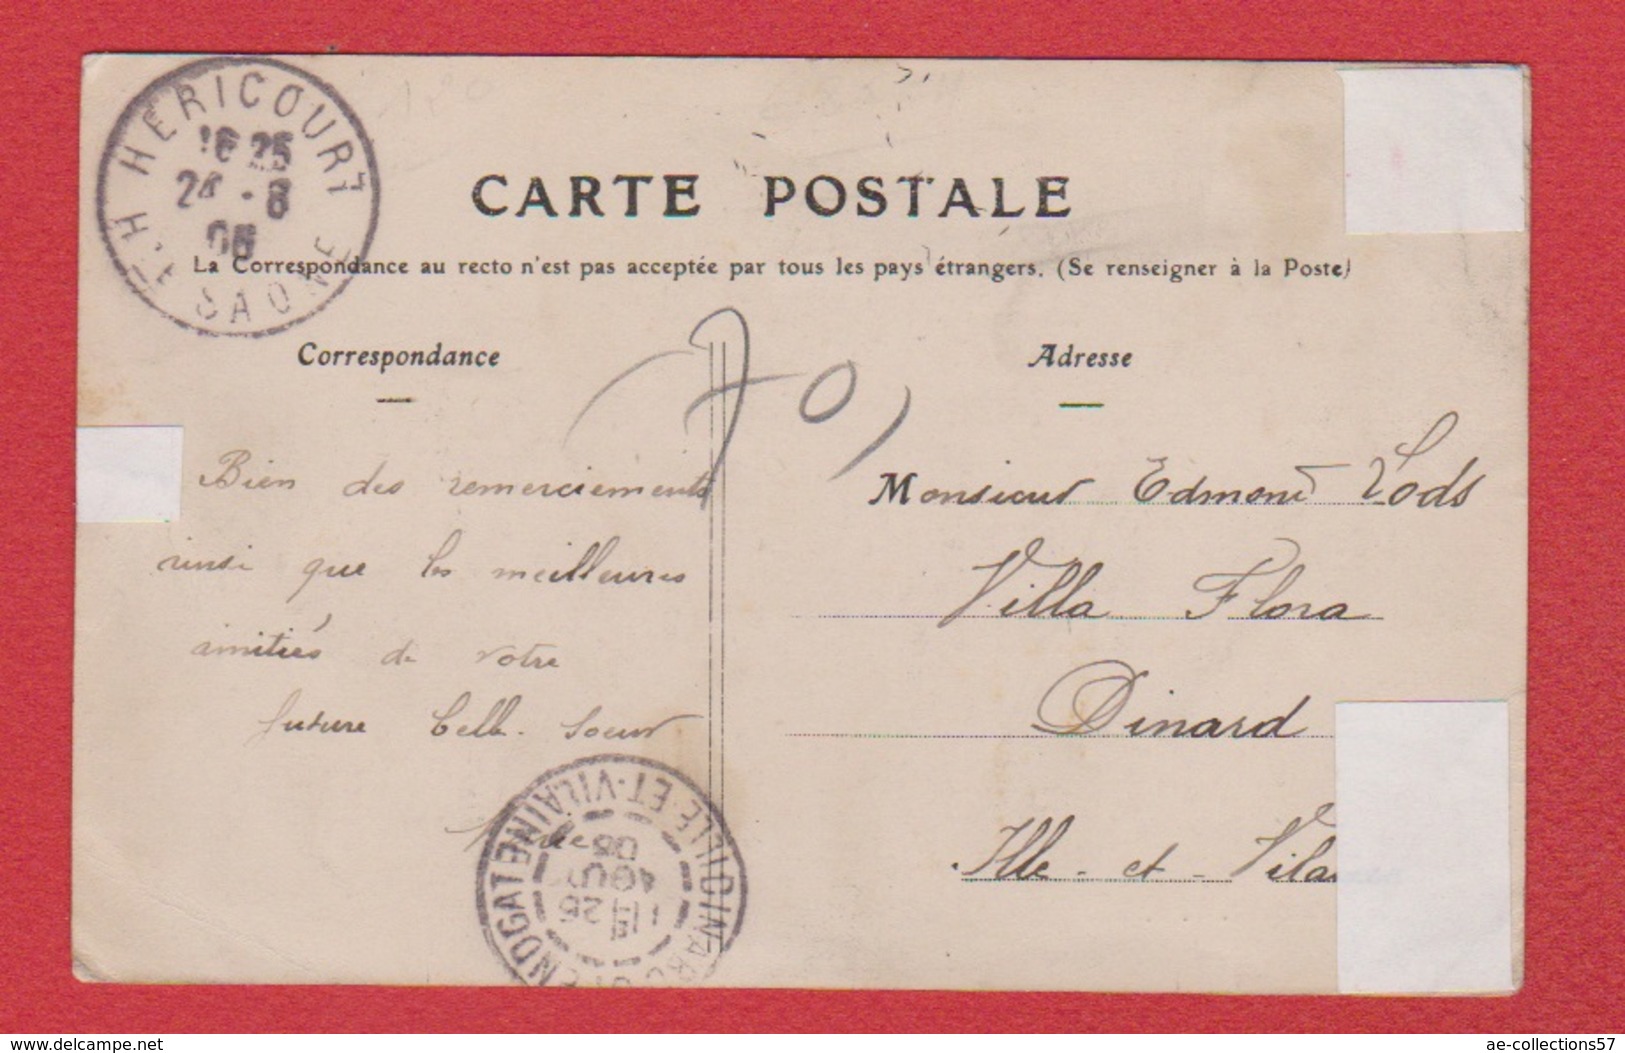 HÉRICOURT
16 25
24 - 8
06
HTE SAONE
CARTE POSTALE
La Correspondance au recto n'est pas acceptée par tous les pays étrangers. (Se renseigner à la Poste)
Correspondance
Adresse
70
Bien des remerciements
ainsi que les meilleures
amitiés de votre
future belle-soeur
Monsieur Edmond Lods
Villa Flora
Dinard
Ille-et-Vila
DINARD ST ENOGAT
ILLE-ET-VILAINE
25
AOUT
06
delcampe.net
ae-collections57